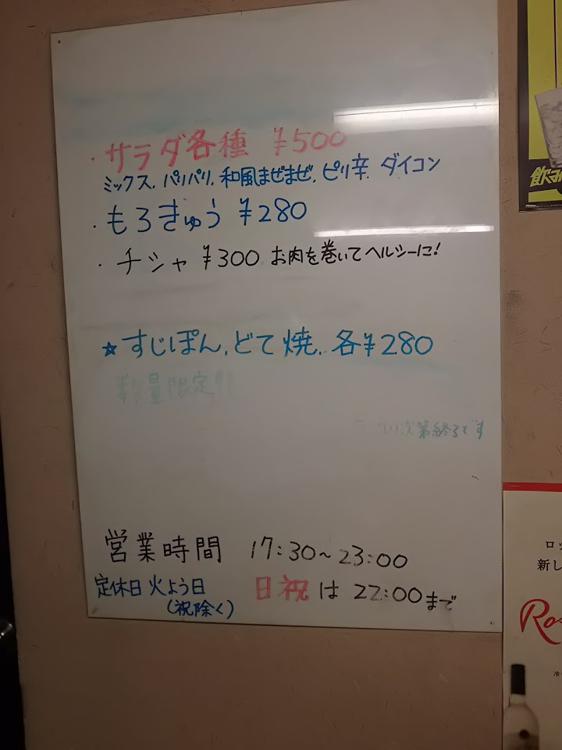 ・サラダ各種 ¥500
ミックス、パリパリ、和風まぜまぜ、ピリ辛、ダイコン
・もろきゅう ¥280
・チシャ ¥300 お肉を巻いてヘルシーに!
☆すじぽん、どて焼、各¥280
数量限定!!
次第終了です
営業時間 17:30~23:00
定休日 火よう日
(祝除く)
日祝は 22:00まで
飲み
ロッ
新し
Ro